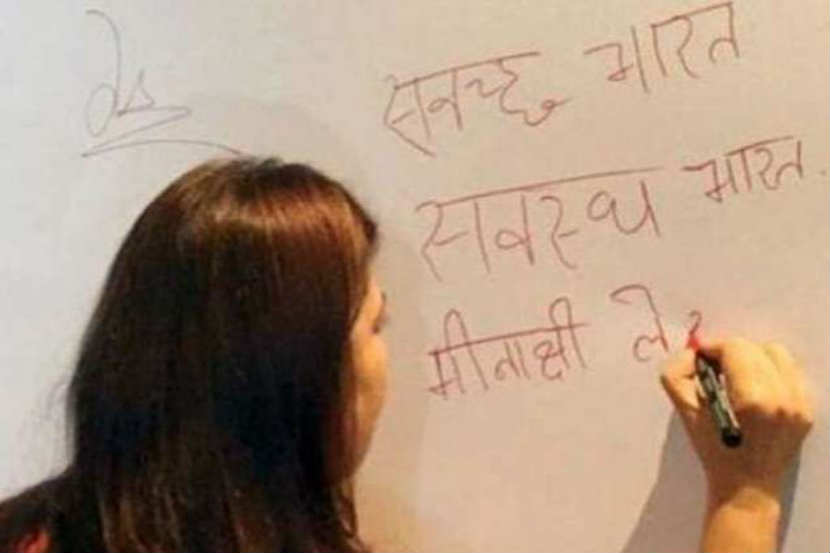 सवच्छ भारत
सवस्थ भारत
मीनाक्षी